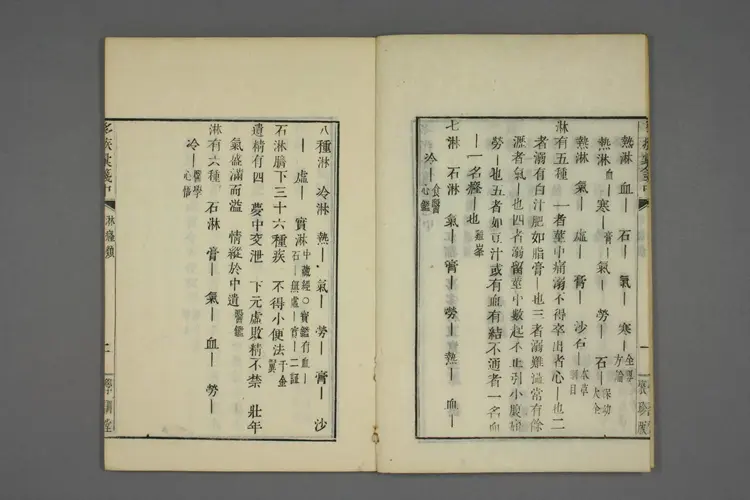 熱淋 血｜ 石｜ 氣｜ 寒｜
熱淋 血｜ 寒｜ 膏｜ 氣｜ 勞｜ 石｜
熱淋 氣｜ 虛｜ 膏｜ 沙石｜
淋有五種 一者莖中痛溺不得卒出者心｜也二
者溺有白汁肥如脂膏｜也三者溺難澁常有餘
瀝者氣｜也四者溺留莖中數起不止引小腹痛
勞｜也五者如豆汁或有血有結不通者一名血
｜一名癃｜也 雞峯
七淋 石淋 氣｜ 膏｜ 勞｜ 熱｜ 血｜
冷｜ 食醫心鑑
八種淋 冷淋 熱｜ 氣｜ 勞｜ 膏｜ 沙
｜ 虛｜ 實淋 中藏經○寶鑑有血｜石｜無虛｜實｜二証
石淋臍下三十六種疾 不得小便法 千金翼
遺精有四 夢中交泄 下元虛敗精不禁 壯年
氣盛滿而溢 情縱於中遺 寶鑑
淋有六種 石淋 膏｜ 氣｜ 血｜ 勞｜
冷｜ 醫學心悟
淋癃類
二